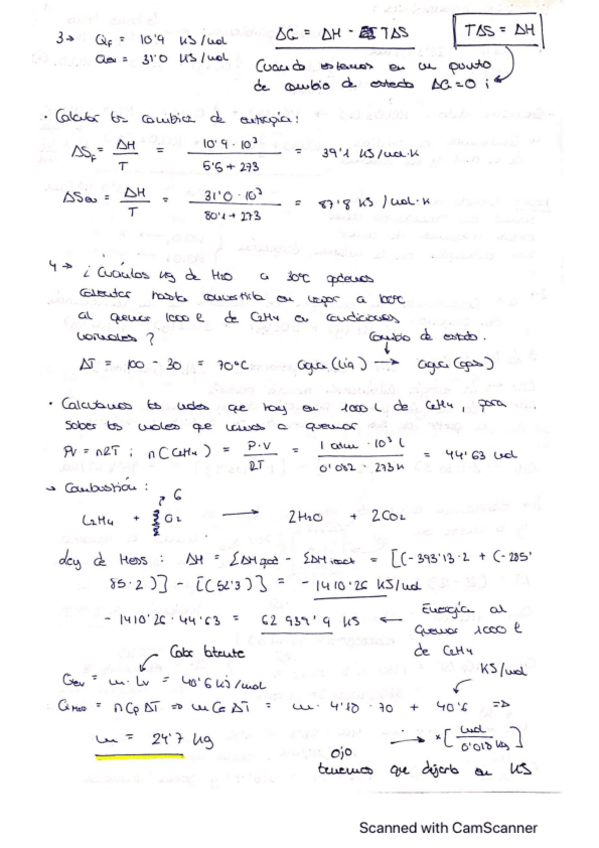 3→ QF = 10'9 KJ/mol
ΔG = ΔH - TΔS
TΔS = ΔH
Qev = 31'0 KJ/mol
Cuando estamos en un punto
de cambio de estado ΔG=0 ;
· Calcular los cambios de entropía:
ΔSF = ΔH/T = 10'9 · 10³ / 5'5 + 273 = 39'1 KJ/mol·K
ΔSev = ΔH/T = 31'0 · 10³ / 80'1 + 273 = 87'8 KJ/mol·K
4→ ¿Cuántos kg de H2O a 30ºC podemos
calentar hasta convertirla en vapor a 100ºC
al quemar 1000 l de C2H4 en condiciones
normales?
Cambio de estado.
ΔT = 100 - 30 = 70ºC agua (líq) → agua (gas)
· Calculamos los moles que hay en 1000 L de C2H4, para
saber los moles que vamos a quemar
PV = nRT ; n(C2H4) = P·V/RT = 1 atm · 10³ l / 0'082 · 273K = 44'63 mol
→ Combustión:
C2H4 + O2 → 2H2O + 2CO2
Ley de Hess : ΔH = ΣΔHprod - ΣΔHreact = [(-393'13·2 + (-285'
85·2)] - [(52'3)] = -1410'26 KJ/mol
-1410'26 · 44'63 = 62 939'9 KJ ← Energía al
quemar 1000 l
de C2H4
Calor latente
Qev = m·Lv = 40'6 kJ/mol
KJ/mol
QH2O = nCpΔT ⇒ mCeΔT = m · 4'18 · 70 + 40'6 ⇒
m = 24'7 kg
→ ×[mol/0'018 kg]
Ojo
tenemos que dejarlo en KJ
Scanned with CamScanner